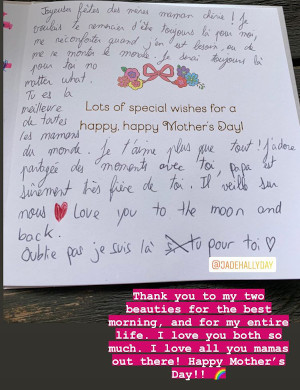 Joyeuse fêtes des mères maman chérie ! Je
voulais te remercier d'être toujours là pour moi,
me réconforter quand j'en ai besoin, ou de
me montrer le monde. Je serai toujours là
pour toi no
matter what.
Tu es la
meilleure
de toutes
les mamans
Lots of special wishes for a
happy, happy Mother's Day!
du monde. Je t'aime plus que tout ! j'adore
partagée des moments avec toi, papa est
sûrement très fière de toi. Il veille sur
nous ❤ love you to the moon and
back.
Oublie pas je suis là tu pour toi ♡
@JADEHALLYDAY
Thank you to my two
beauties for the best
morning, and for my entire
life. I love you both so
much. I love all you mamas
out there! Happy Mother's
Day!! 🌈